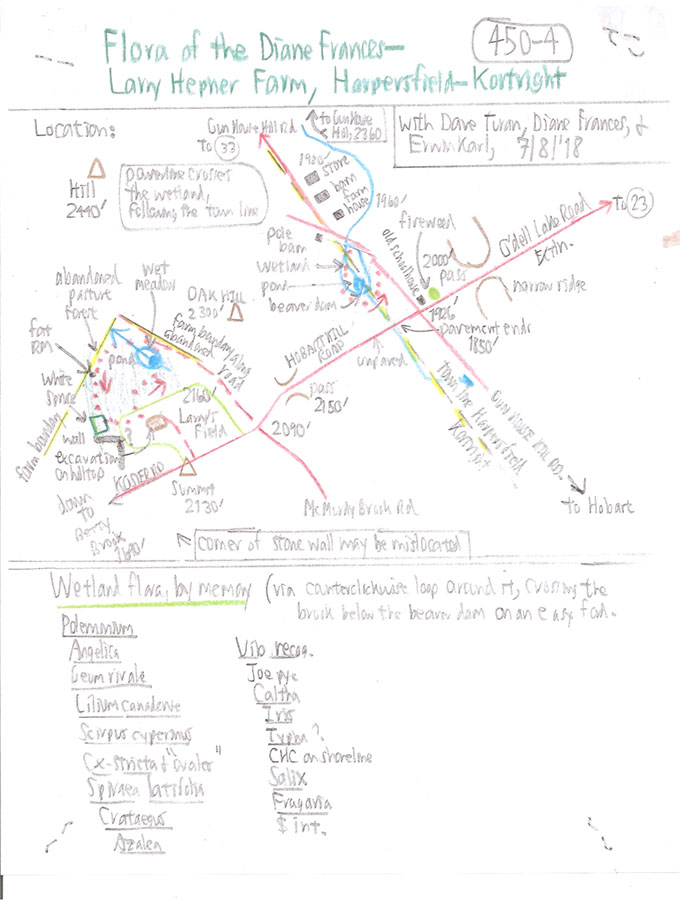 450-4
Flora of the Diane Frances—
Larry Hepner Farm, Harpersfield–Kortright
Location:
With Dave Turan, Diane Frances, &
Erwin Karl, 7/8/'18
Gun House Hill Rd.
to 33
to Gun House
Hill, 2360
Hill
2440'
powerline crosses
the wetland,
following the town line
1980'
store
barn
farm
house
1960'
pole
barn
wetland
pond
beaver dam
old schoolhouse
fireweed
2000'
pass
1926'
O'dell Lake Road
Extn.
to 23
narrow ridge
pavement ends
1850'
unpaved
HOBART HILL
ROAD
pass
2150'
2090'
town line Harpersfield
Kortright
GUN HOUSE HILL RD.
to Hobart
abandoned
pasture
forest
wet
meadow
OAK HILL
2300'
farm boundary along
abandoned
road
far
RM
white
spruce
pond
wall
excavation
on hilltop
farm boundary
2160'
Larry's
Field
Summit
2130'
McMurdy Brook Rd
down
to
Betty
Brook
1690'
corner of stone wall may be mislocated
Wetland flora, by memory (via counterclockwise loop around it, crossing the
brook below the beaver dam on an easy ford.
Polemonium
Angelica
Geum rivale
Lilium canadense
Scirpus cyperinus
Cx-stricta & "ovales"
Spiraea latifolia
Crataegus
Azalea
Vib recog.
Joe pye
Caltha
Iris
Typha?
CHC on shoreline
Salix
Fragaria
$ int.